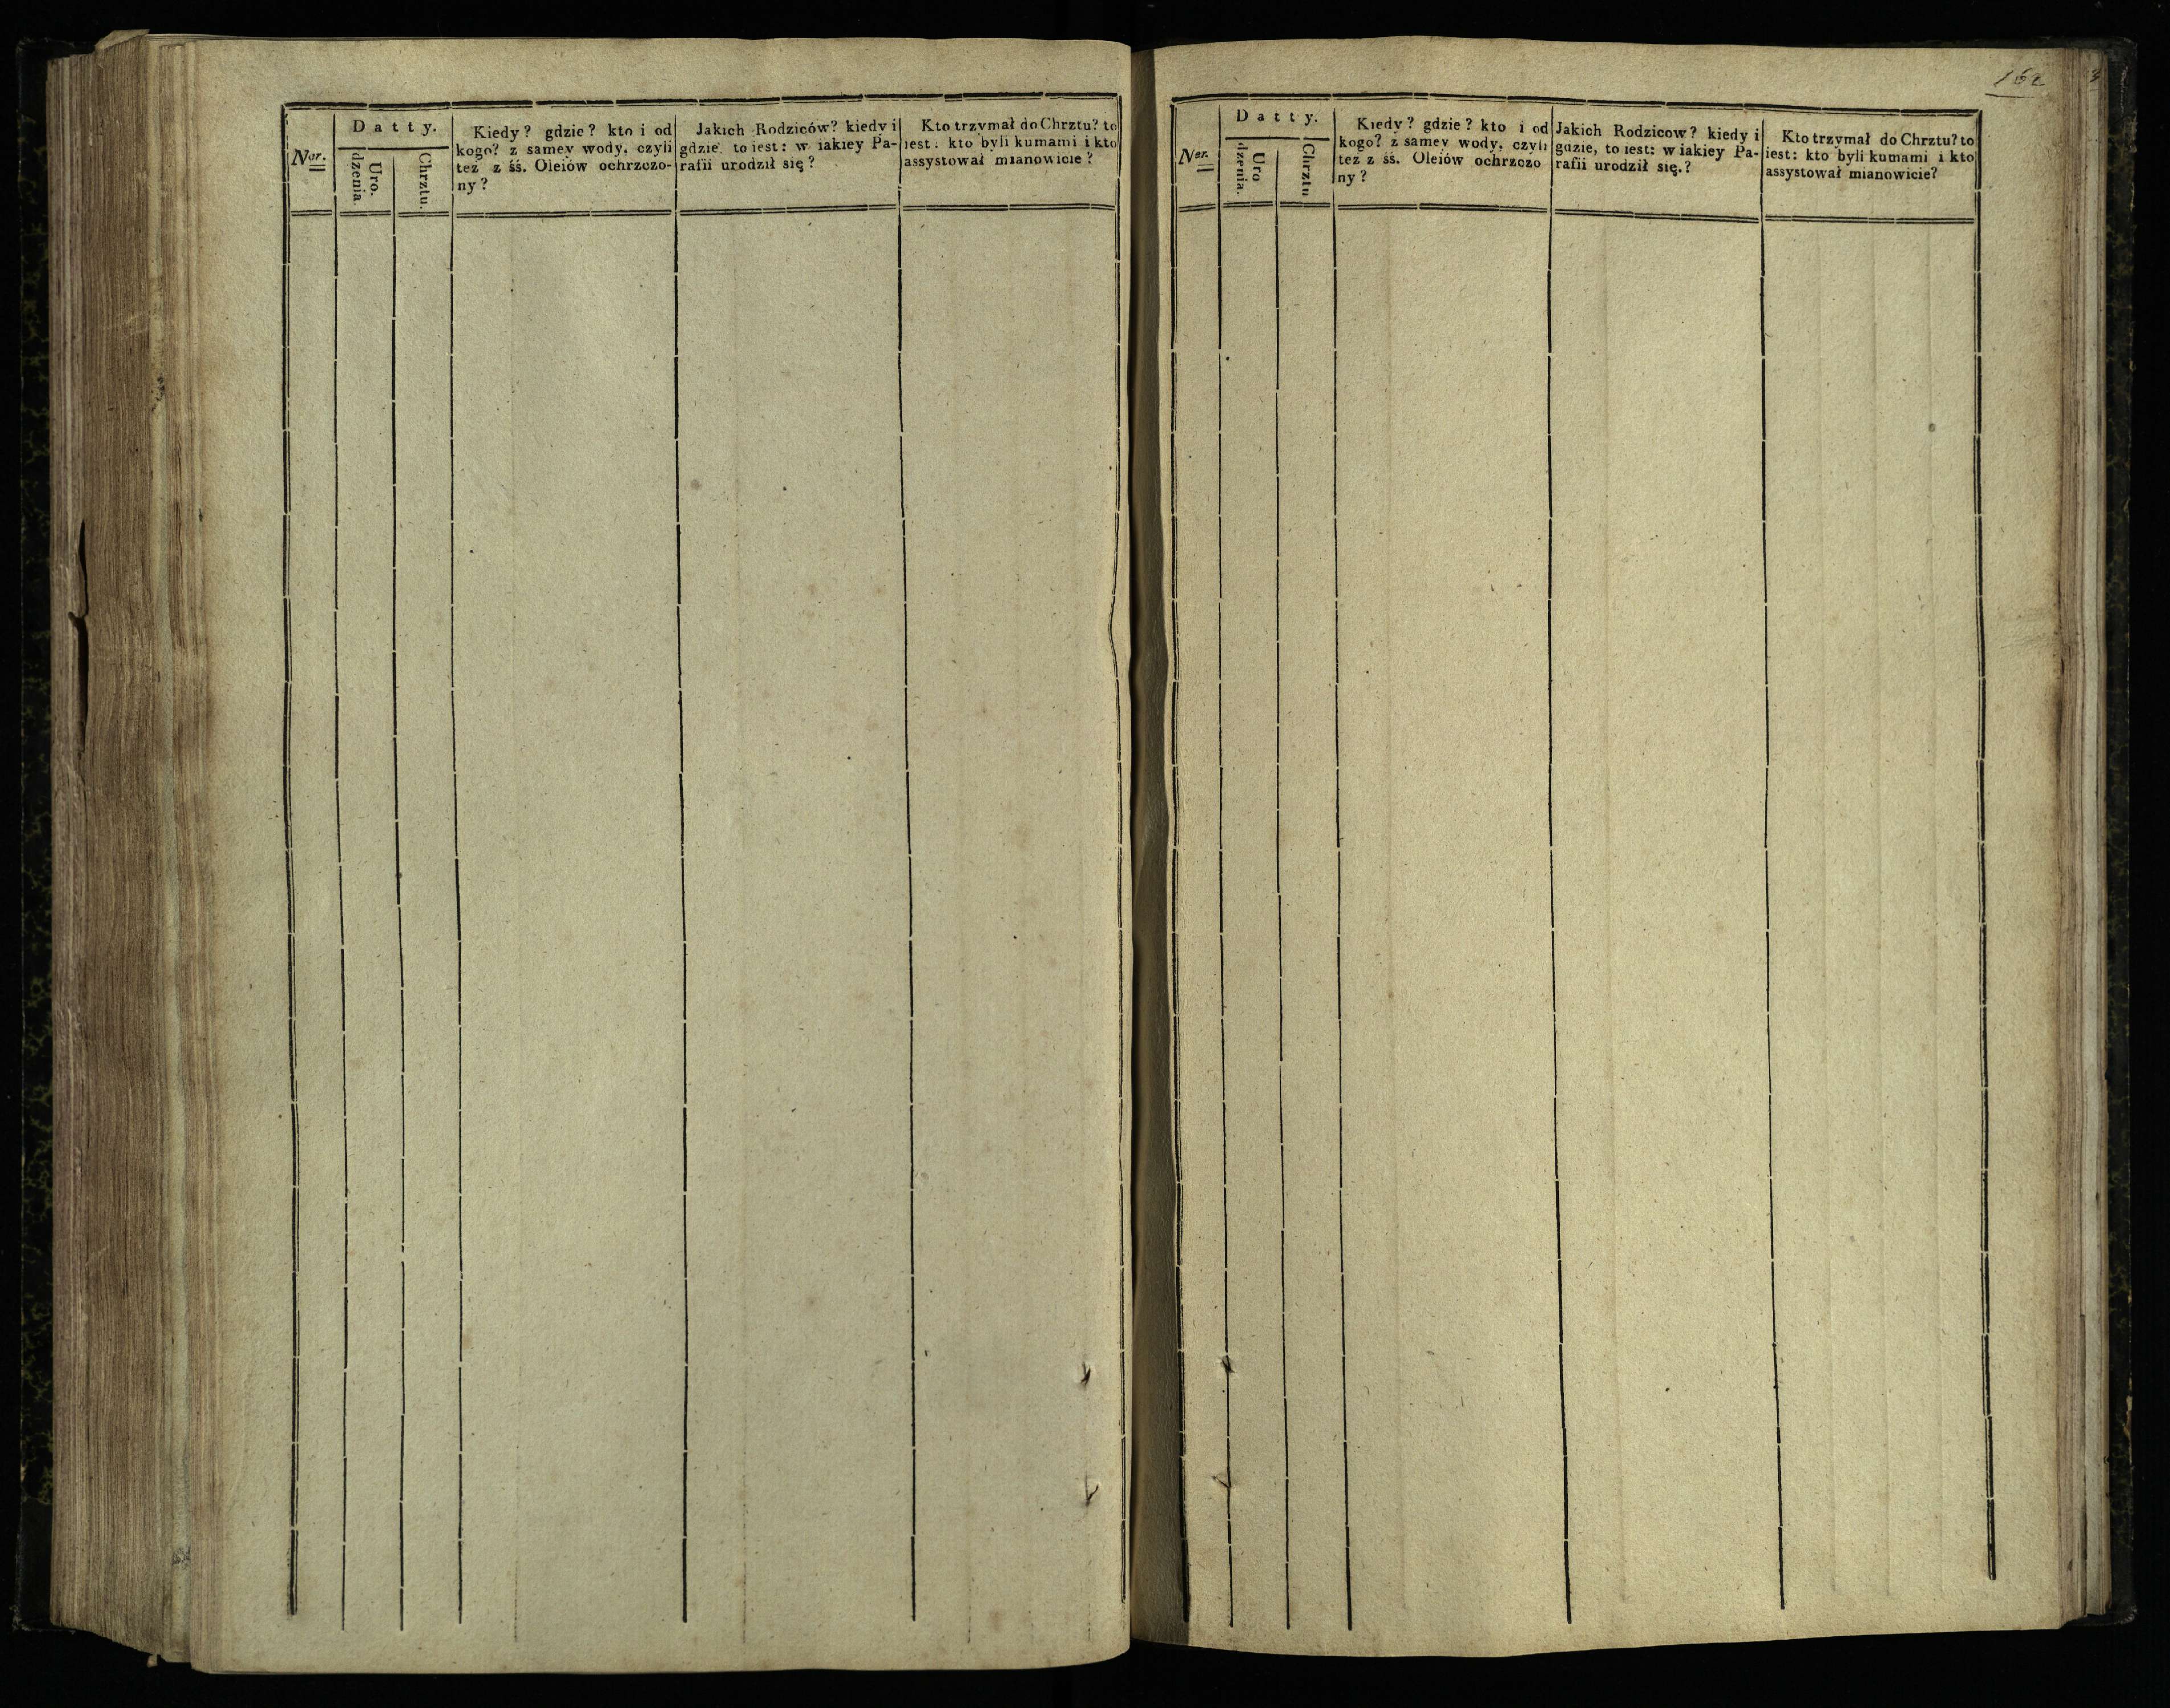 Ner.
Datty.
Uro.
dzenia.
Chrztu.
Kiedy? gdzie? kto i od
kogo? z samey wody, czyli
też z śś. Oleiów ochrzczo-
ny?
Jakich Rodziców? kiedy i
gdzie, to iest: w iakiey Pa-
rafii urodził się?
Kto trzymał do Chrztu? to
iest: kto byli kumami i kto
assystował mianowicie?
162
Ner.
Datty.
Uro
dzenia.
Chrztu
Kiedy? gdzie? kto i od
kogo? z samey wody, czyli
też z śś. Oleiów ochrzczo
ny?
Jakich Rodzicow? kiedy i
gdzie, to iest: w iakiey Pa-
rafii urodził się.?
Kto trzymał do Chrztu? to
iest: kto byli kumami i kto
assystował mianowicie?